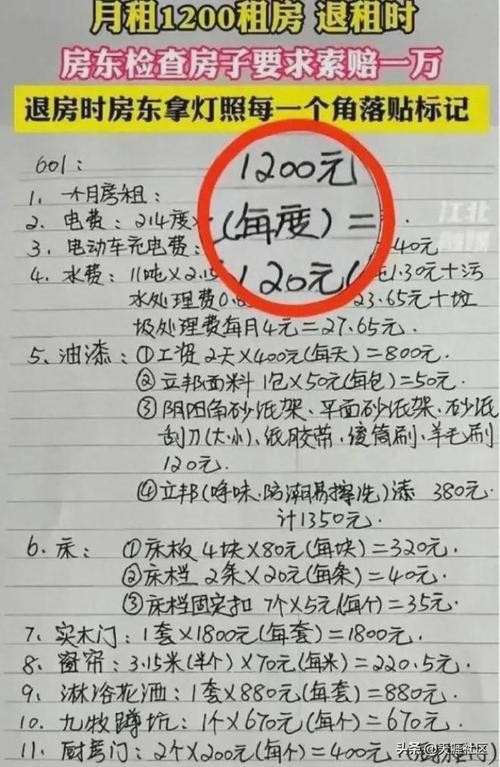 月租1200租房 退租时
房东检查房子要求索赔一万
退房时房东拿灯照每一个角落贴标记
601:
1200元
1. 一个月房租:
2. 电费:214度×
(每度)=
3. 电动车充电费:
40元
120元(
4. 水费:11吨×2.15
1.30元+污
水处理费0.
23.65元+垃
圾处理费每月4元=27.65元.
5. 油漆:①工资 2天×400元(每天)=800元.
②立邦面料 1包×50元(每包)=50元.
③阴阳角砂纸架、平面砂纸架、砂纸
刮刀(大小)、纸胶带、滚筒刷、羊毛刷
120元.
④立邦(净味、防潮易擦洗)漆 380元
计1350元.
6. 床: ①床板 4块×80元(每块)=320元.
②床栏 2条×20元(每条)=40元.
③床栏固定扣 7个×5元(每个)=35元.
7. 实木门:1套×1800元(每套)=1800元.
8. 窗帘:3.15米(半个)×70元(每米)=220.5元.
9. 淋浴花洒:1套×880元(每套)=880元.
10. 九牧蹲坑:1个×670元(每个)=670元.
11. 厨房门:2个×200元(每个)=400元
头条 @天涯社区